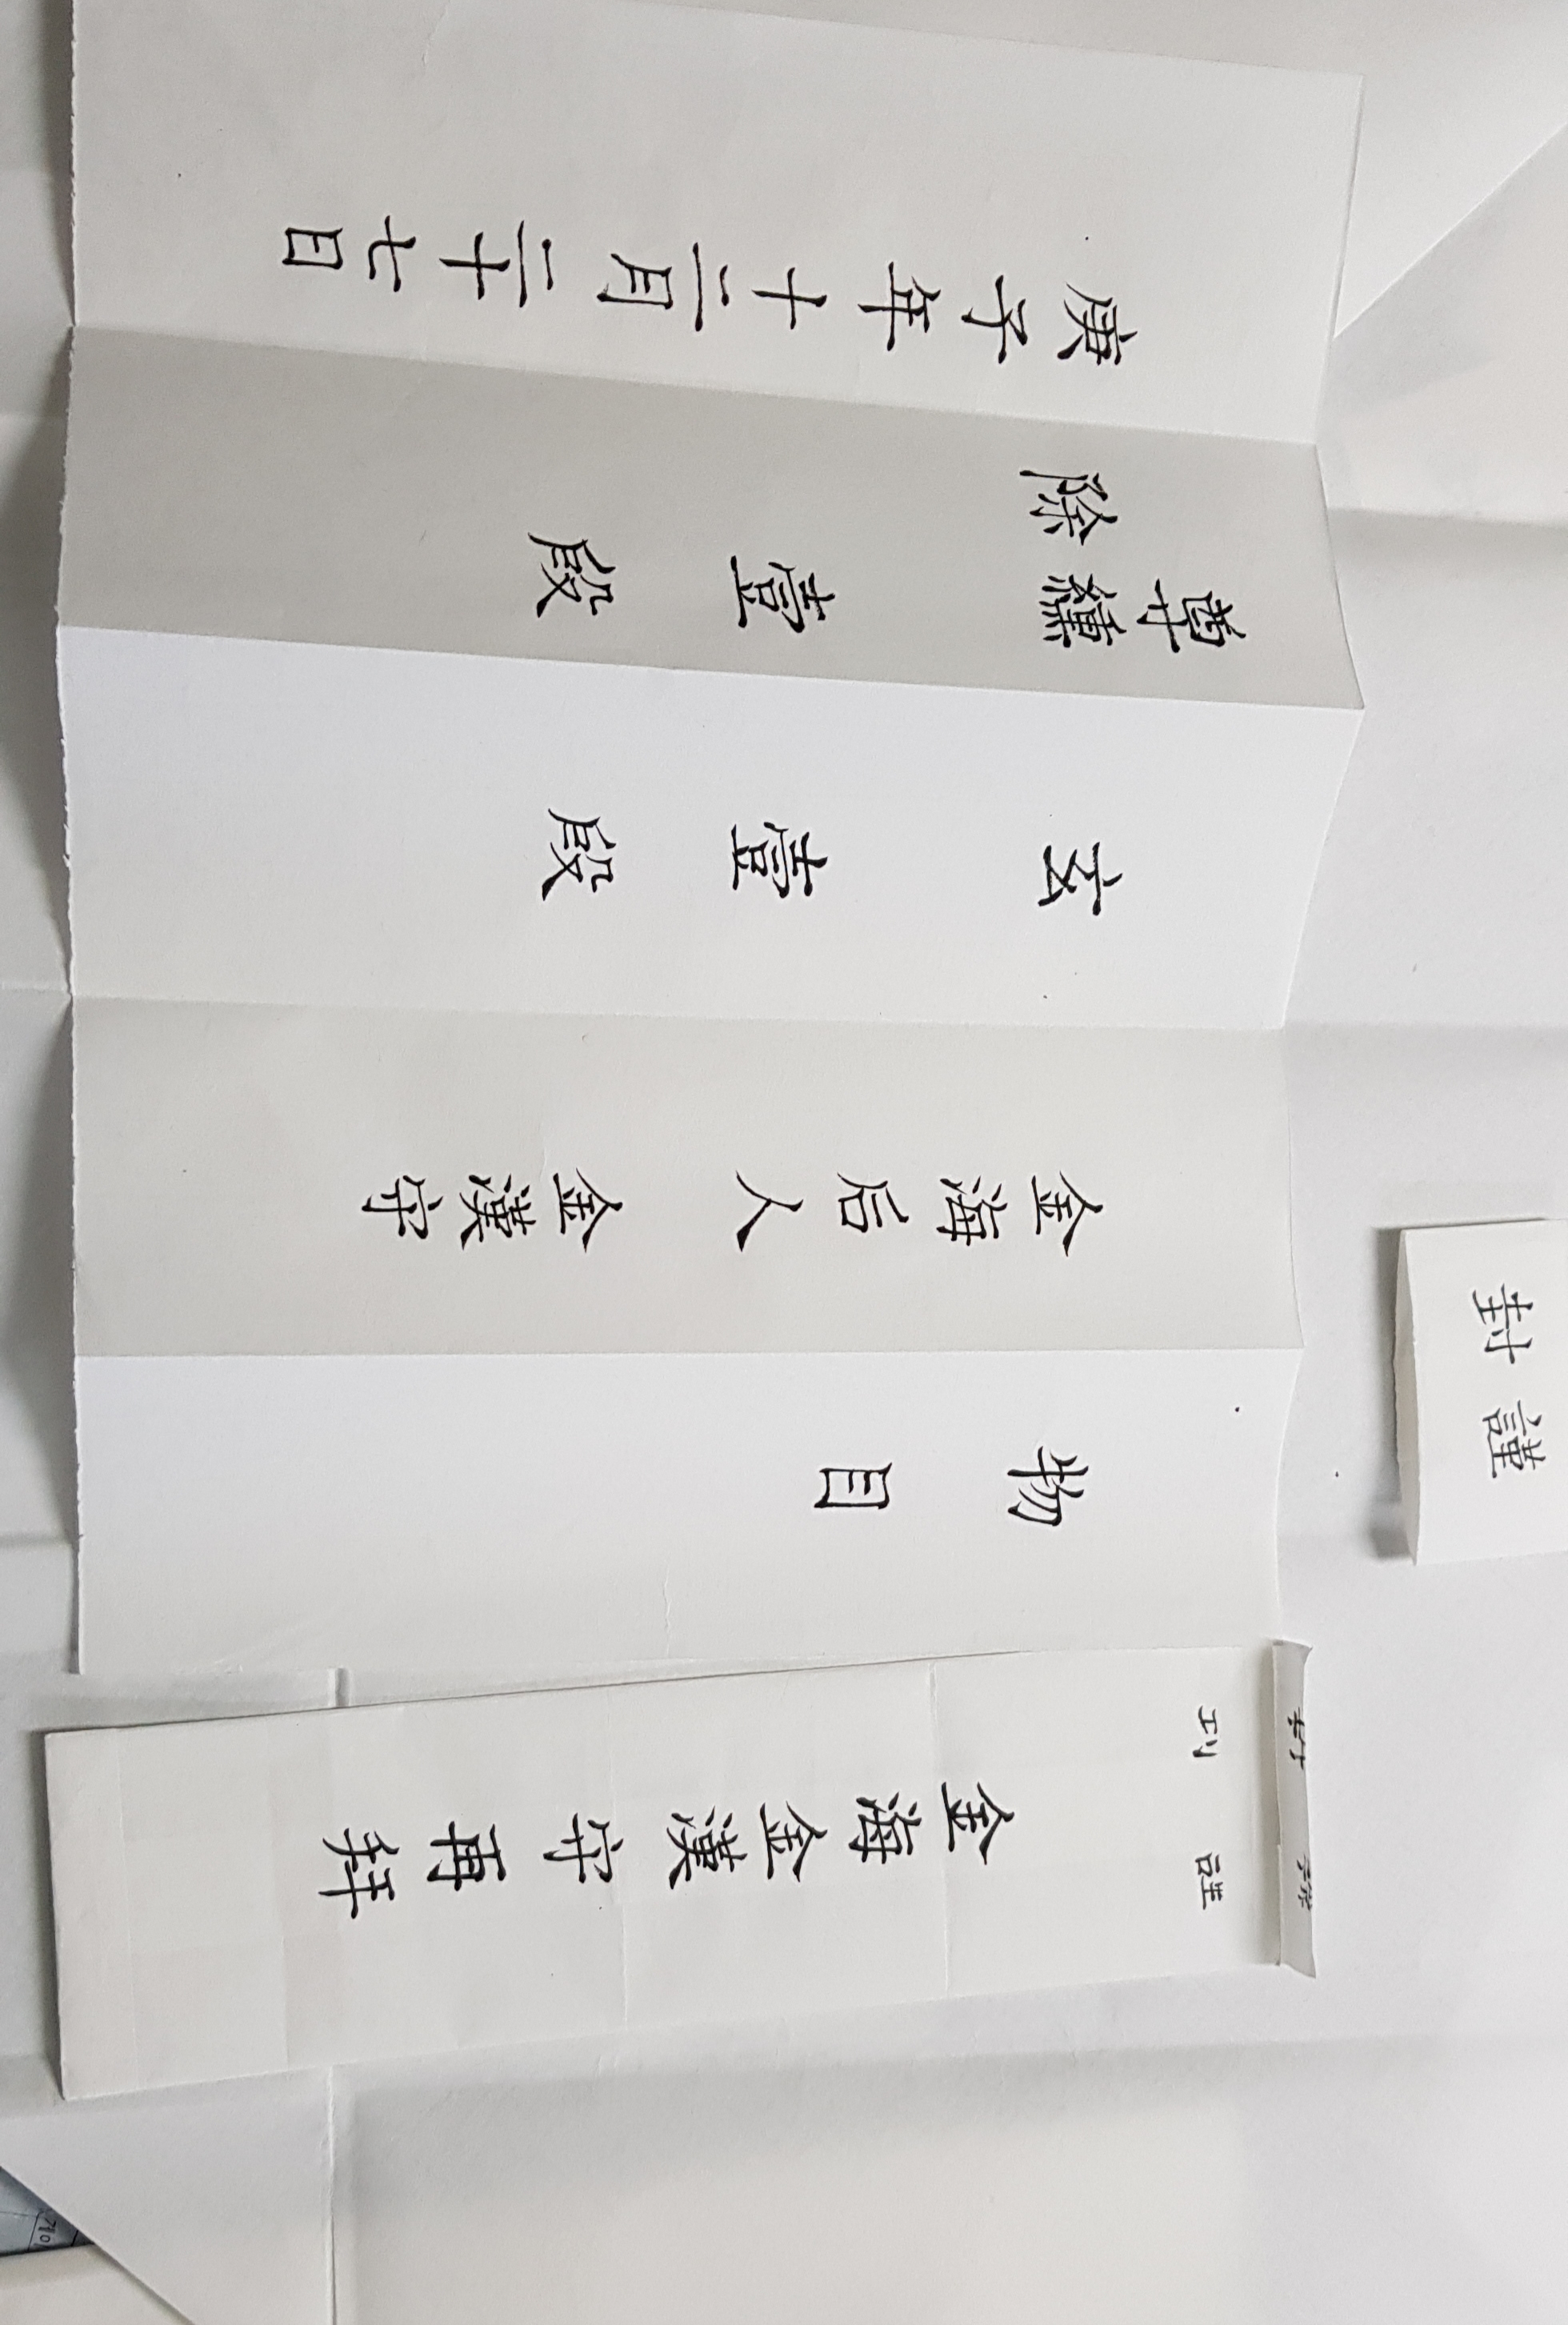 物目
金海后人 金漢守
玄 壹段
纁 壹段
除
庚子年十二月二十七日
謹封
金海金漢守再拜